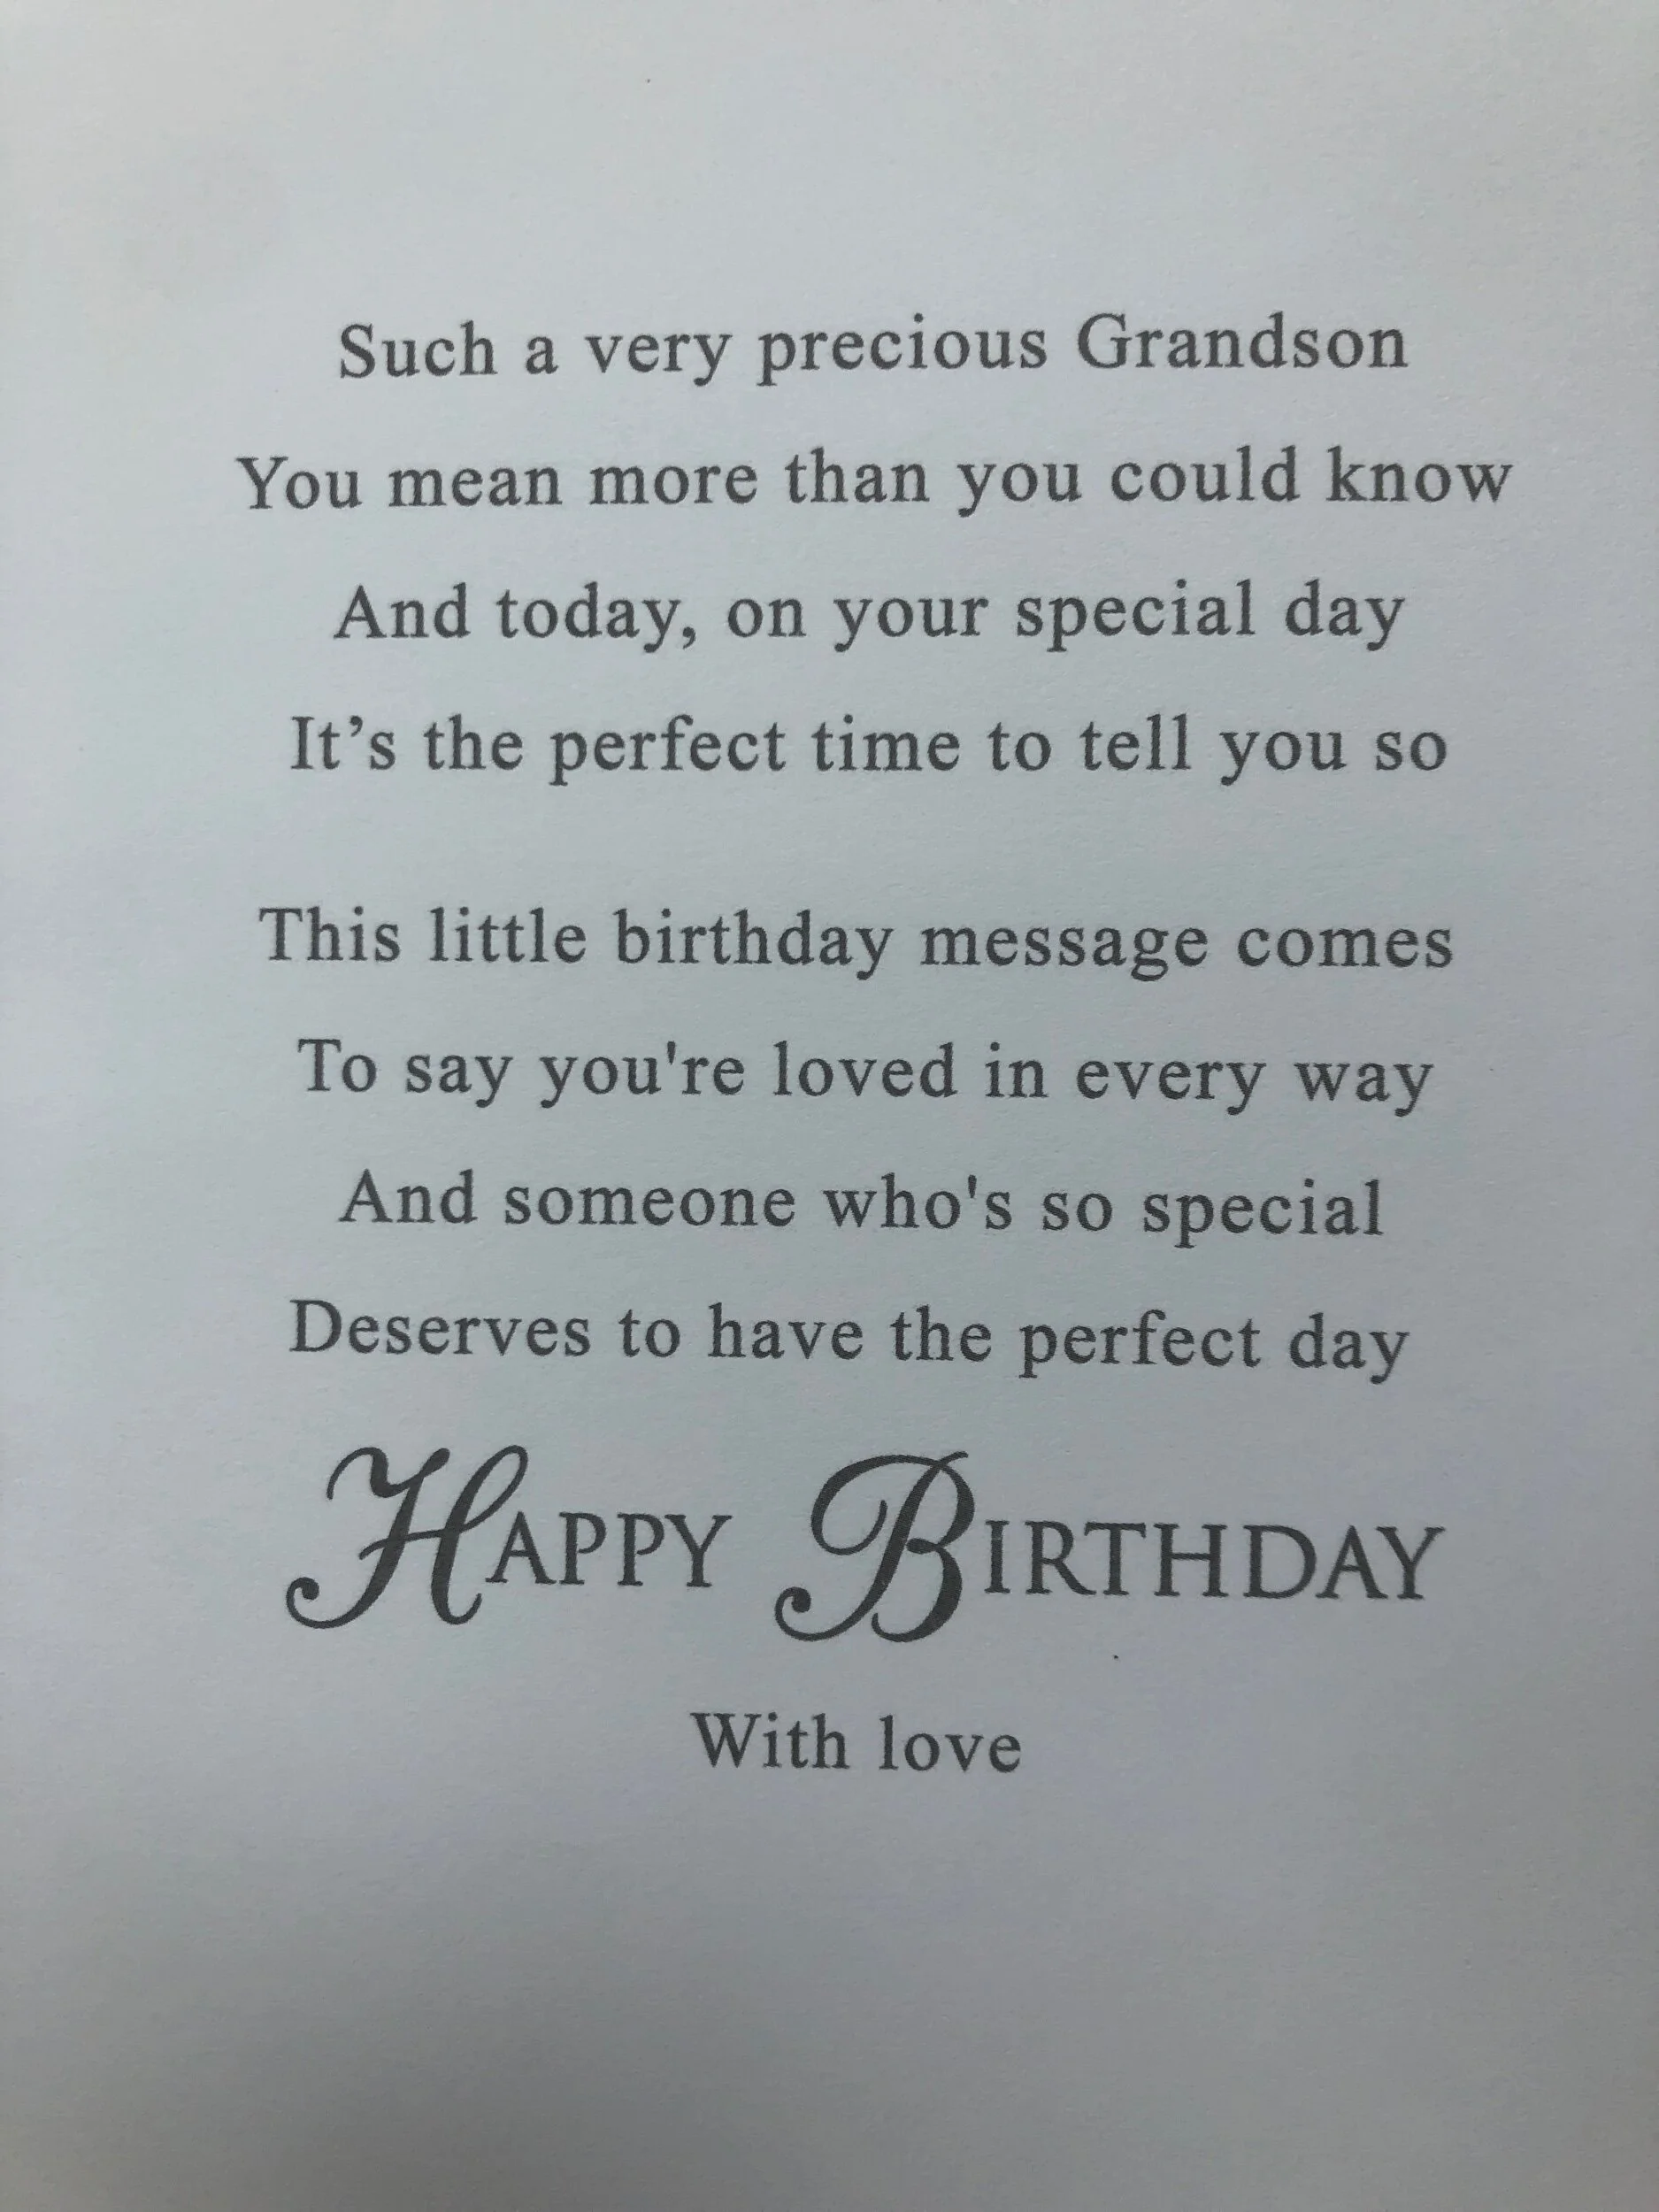 Such a very precious Grandson
You mean more than you could know
And today, on your special day
It’s the perfect time to tell you so
This little birthday message comes
To say you're loved in every way
And someone who's so special
Deserves to have the perfect day
HAPPY BIRTHDAY
With love